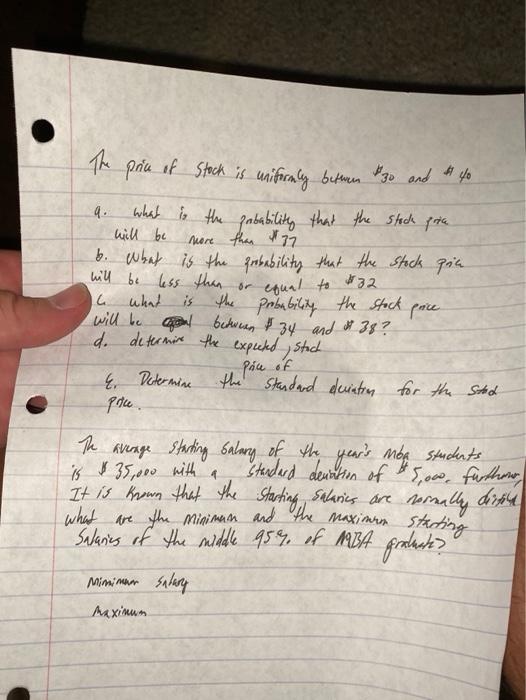 The price of Stock is uniformly between $30 and $40
a. what is the probability that the stock price
will be more than $37
b. What is the probability that the stock price
will be less than or equal to $32
c. what is the probability the stock price
will be between $34 and $38?
d. determine the expected price of stock
E. Determine the standard deviation for the Stock
price.
The average starting Salary of the year's mba students
is $35,000 with a standard deviation of $5,000. furthermore
It is known that the starting salaries are normally
what are the minimum and the maximum starting
Salaries of the middle 95% of MBA graduates?
Minimum Salary
Maximum